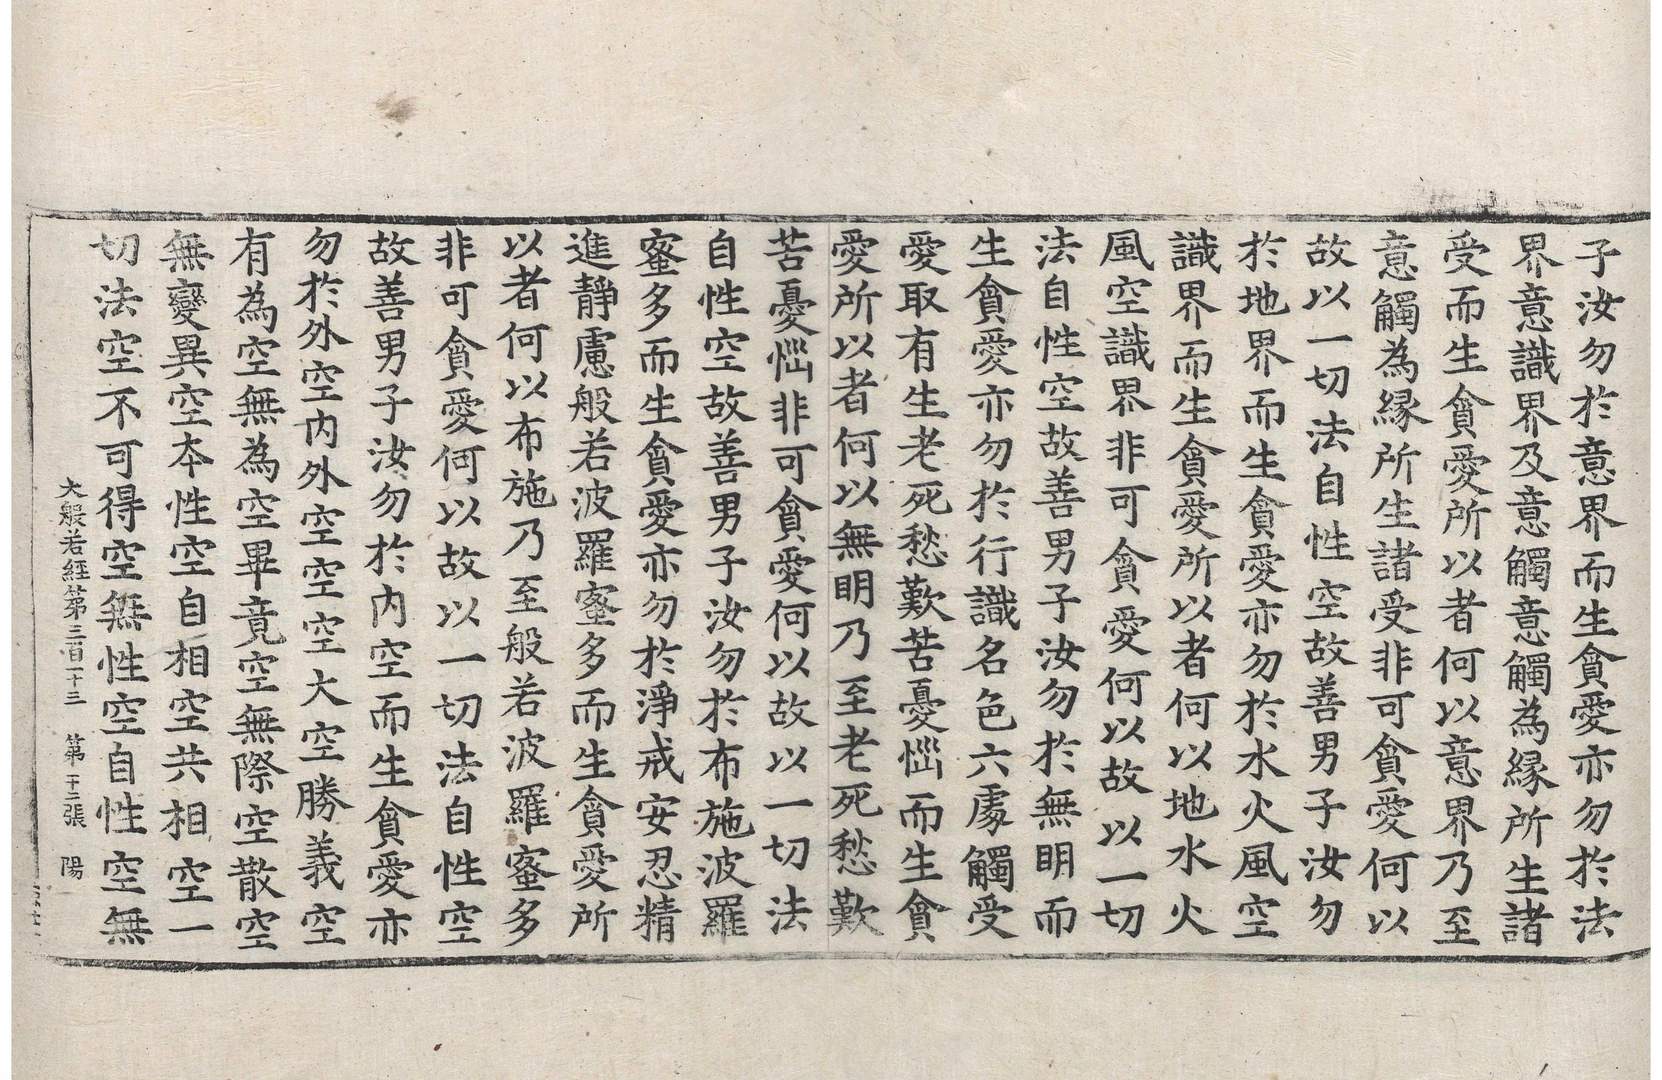 子汝勿於意界而生貪愛亦勿於法
界意識界及意觸意觸為縁所生諸
受而生貪愛所以者何以意界乃至
意觸為縁所生諸受非可貪愛何以
故以一切法自性空故善男子汝勿
於地界而生貪愛亦勿於水火風空
識界而生貪愛所以者何以地水火
風空識界非可貪愛何以故以一切
法自性空故善男子汝勿於無明而
生貪愛亦勿於行識名色六處觸受
愛取有生老死愁歎苦憂惱而生貪
愛所以者何以無明乃至老死愁歎
苦憂惱非可貪愛何以故以一切法
自性空故善男子汝勿於布施波羅
蜜多而生貪愛亦勿於淨戒安忍精
進靜慮般若波羅蜜多而生貪愛所
以者何以布施乃至般若波羅蜜多
非可貪愛何以故以一切法自性空
故善男子汝勿於內空而生貪愛亦
勿於外空內外空空空大空勝義空
有為空無為空畢竟空無際空散空
無變異空本性空自相空共相空一
切法空不可得空無性空自性空無
大般若經第三百一十三 第十二張 陽